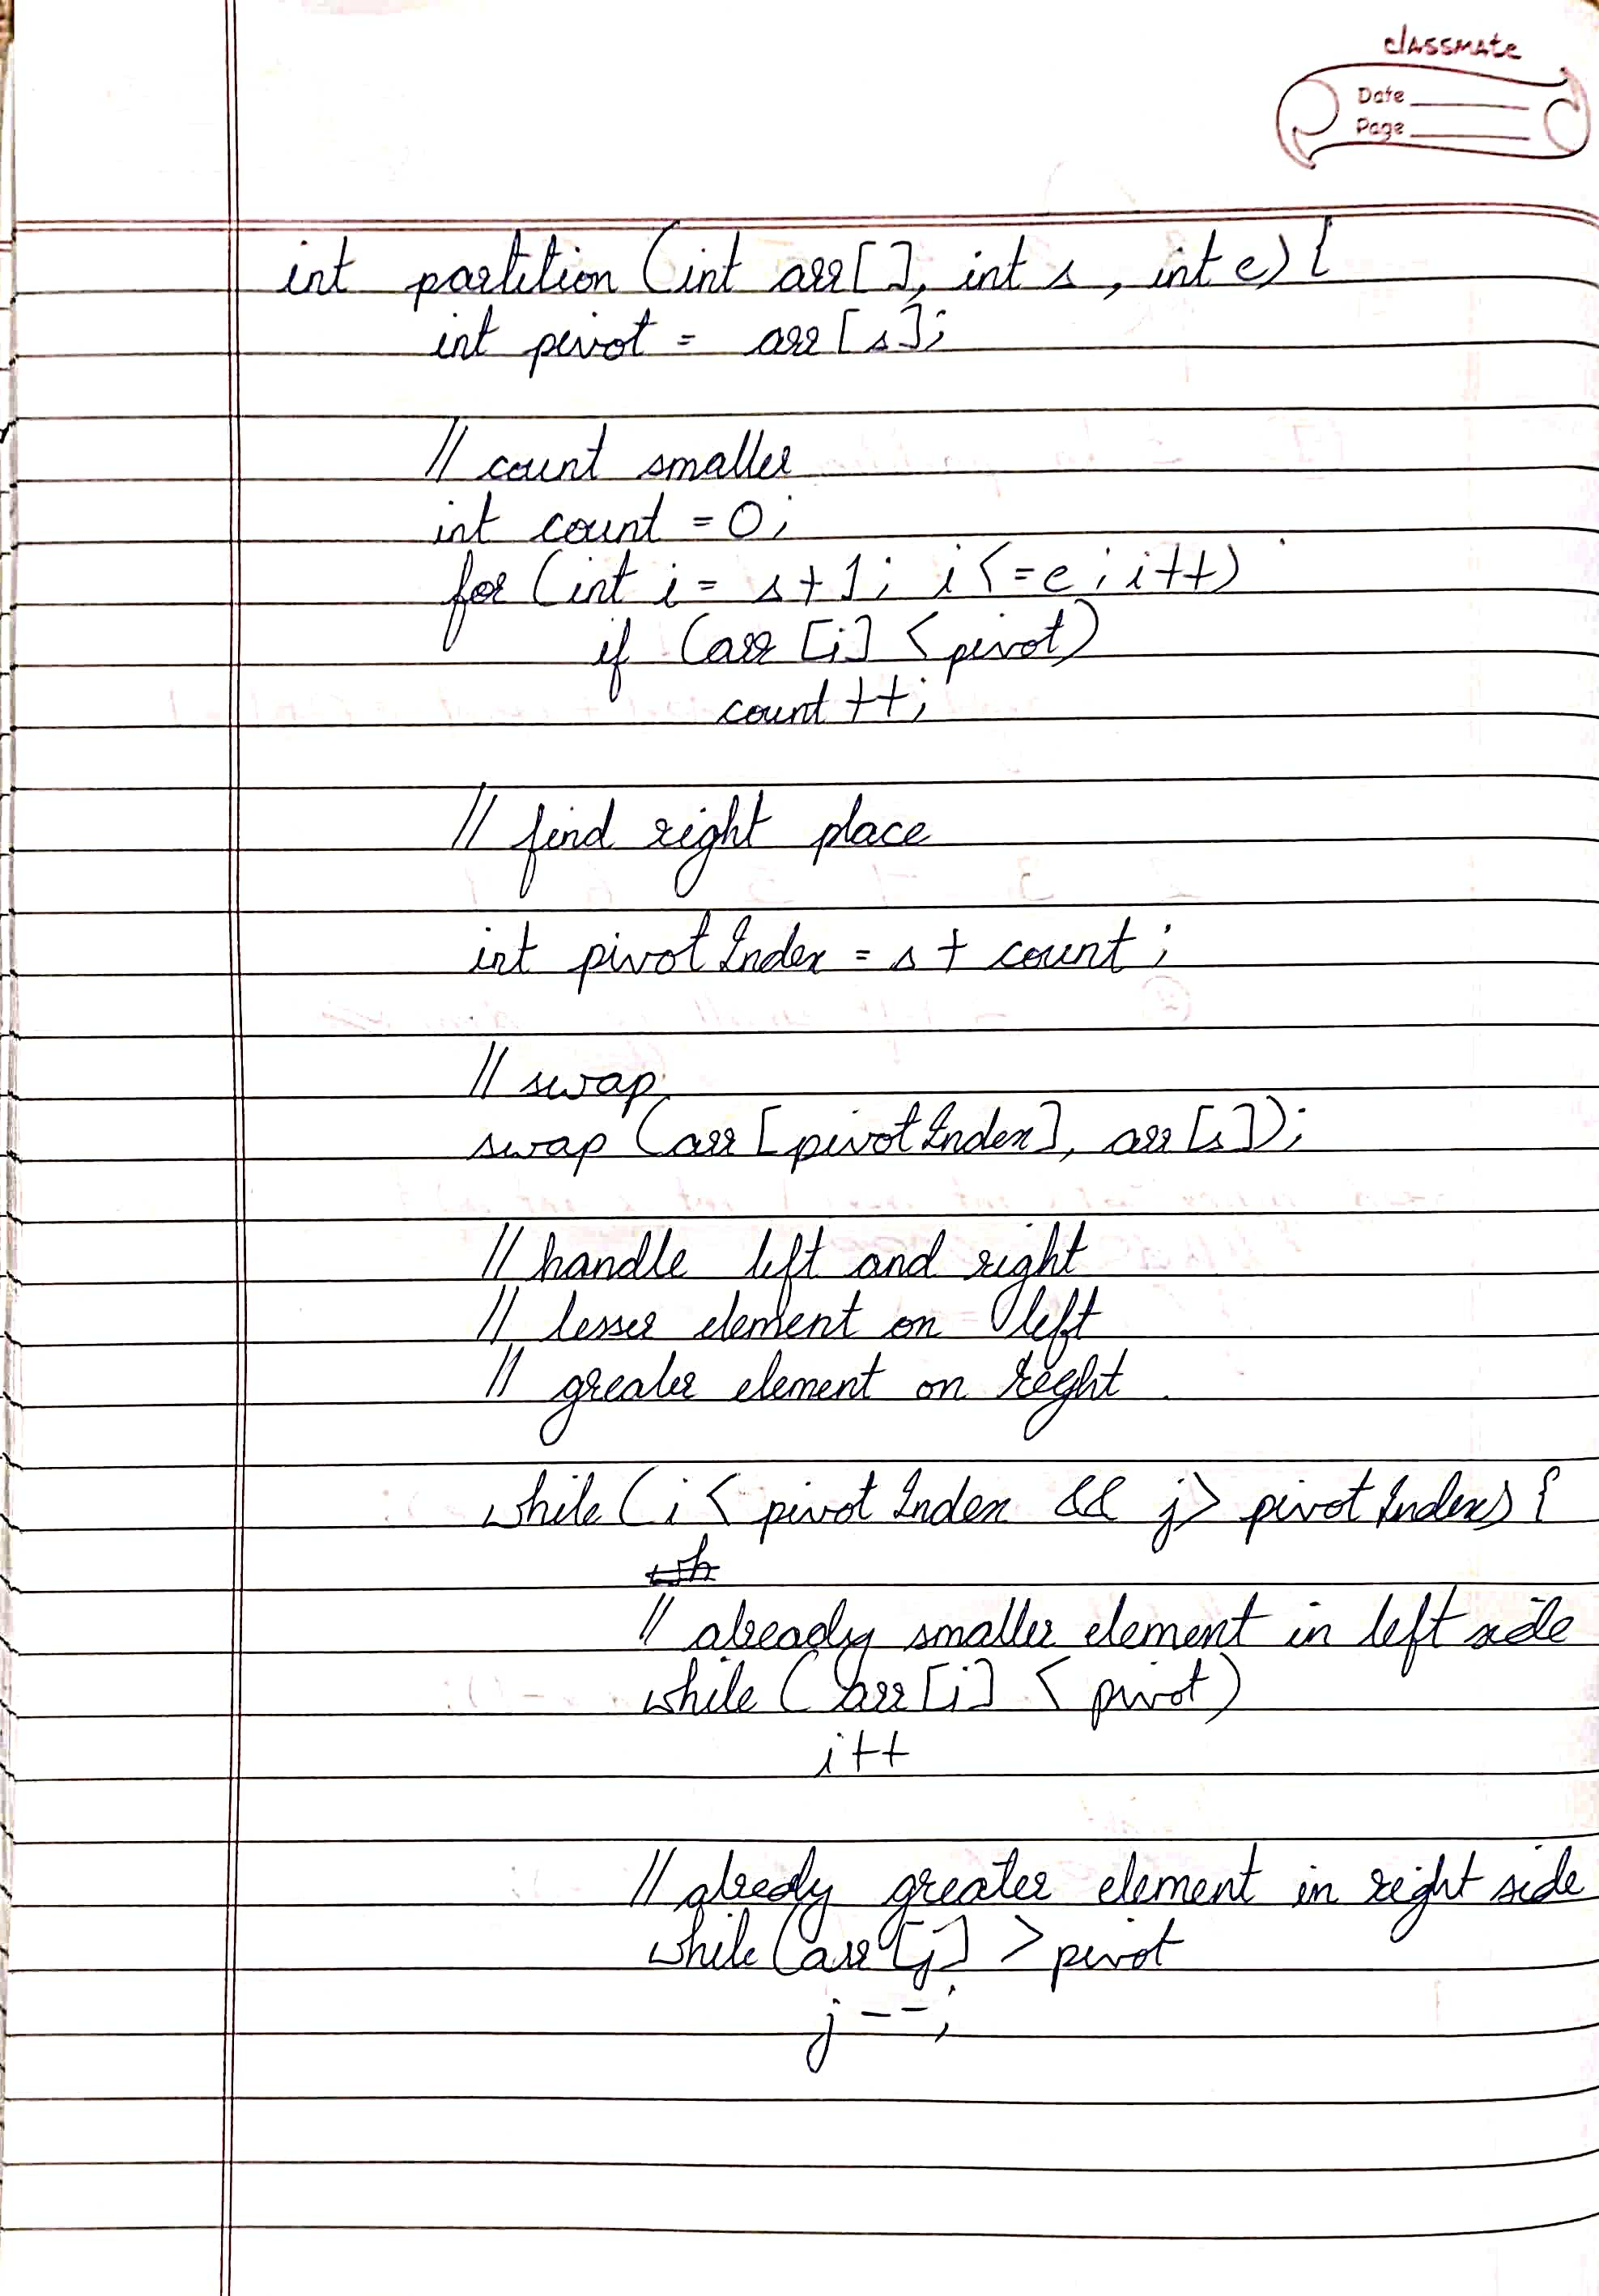 classmate
Date
Page
int partition (int arr[], int s, int e) {
int pivot = arr[s];
// count smaller
int count = 0;
for (int i = s+1; i<=e; i++)
if (arr[i] < pivot)
count++;
// find right place
int pivotIndex = s + count;
// swap
swap (arr[pivotIndex], arr[s]);
// handle left and right
// lesser element on left
// greater element on right
while (i < pivotIndex && j > pivotIndex) {
// already smaller element in left side
while (arr[i] < pivot)
i++
// alredy greater element in right side
while (arr[j] > pivot
j--;